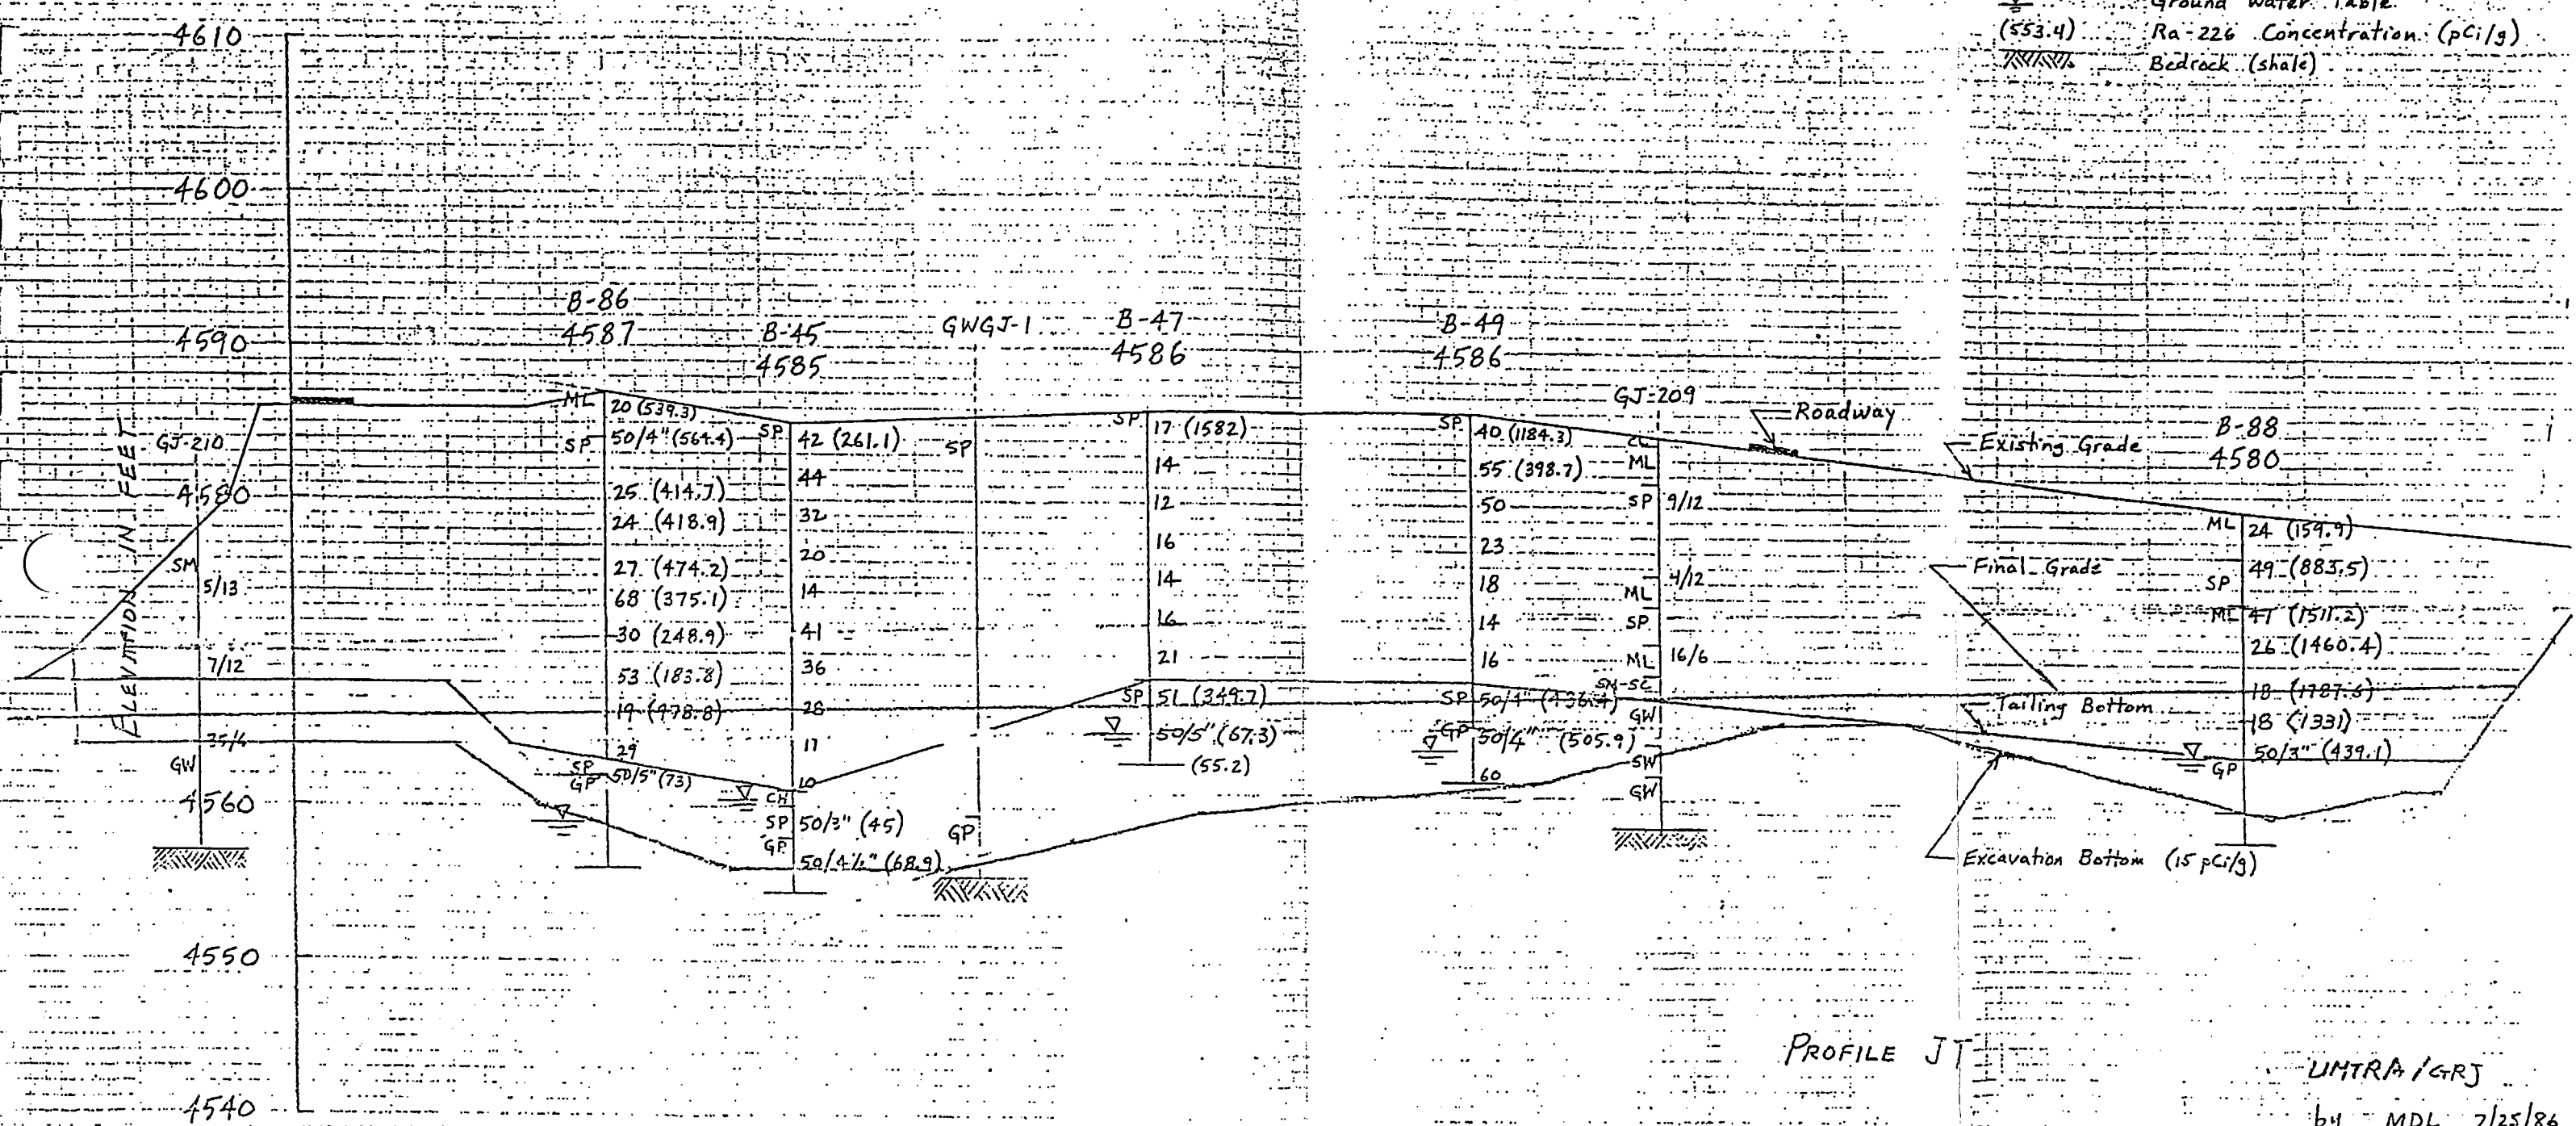 Ground Water Table
(553.4) Ra-226 Concentration (pCi/g)
Bedrock (shale)
4610
4600
4590
4580
4560
4550
4540
ELEVATION IN FEET
GJ-210
SM
5/13
7/12
35/4
GW
B-86
4587
ML
20 (539.3)
SP
50/4" (564.4)
25 (414.7)
24 (418.9)
27 (474.2)
68 (375.1)
30 (248.9)
53 (183.8)
19 (478.8)
29
SP
GP
50/5" (73)
B-45
4585
SP
42 (261.1)
44
32
20
14
41
36
28
17
10
CH
SP
50/3" (45)
GP
50/4½" (68.9)
GWGJ-1
SP
GP
B-47
4586
SP
17 (1582)
14
12
16
14
16
21
SP
51 (349.7)
50/5" (67.3)
(55.2)
B-49
4586
SP
40 (1184.3)
55 (398.7)
50
23
18
14
16
SP
50/4" (436.4)
GP
50/4" (505.9)
60
GJ-209
CL
ML
SP
9/12
4/12
ML
SP
ML
16/6
SM-SC
GW
SW
GW
Roadway
Existing Grade
Final Grade
Tailing Bottom
Excavation Bottom (15 pCi/g)
B-88
4580
ML
24 (159.9)
49 (883.5)
SP
ML
41 (1511.2)
26 (1460.4)
18 (1331)
50/3" (439.1)
GP
PROFILE JT
UMTRA/GRJ
by MDL 7/25/86